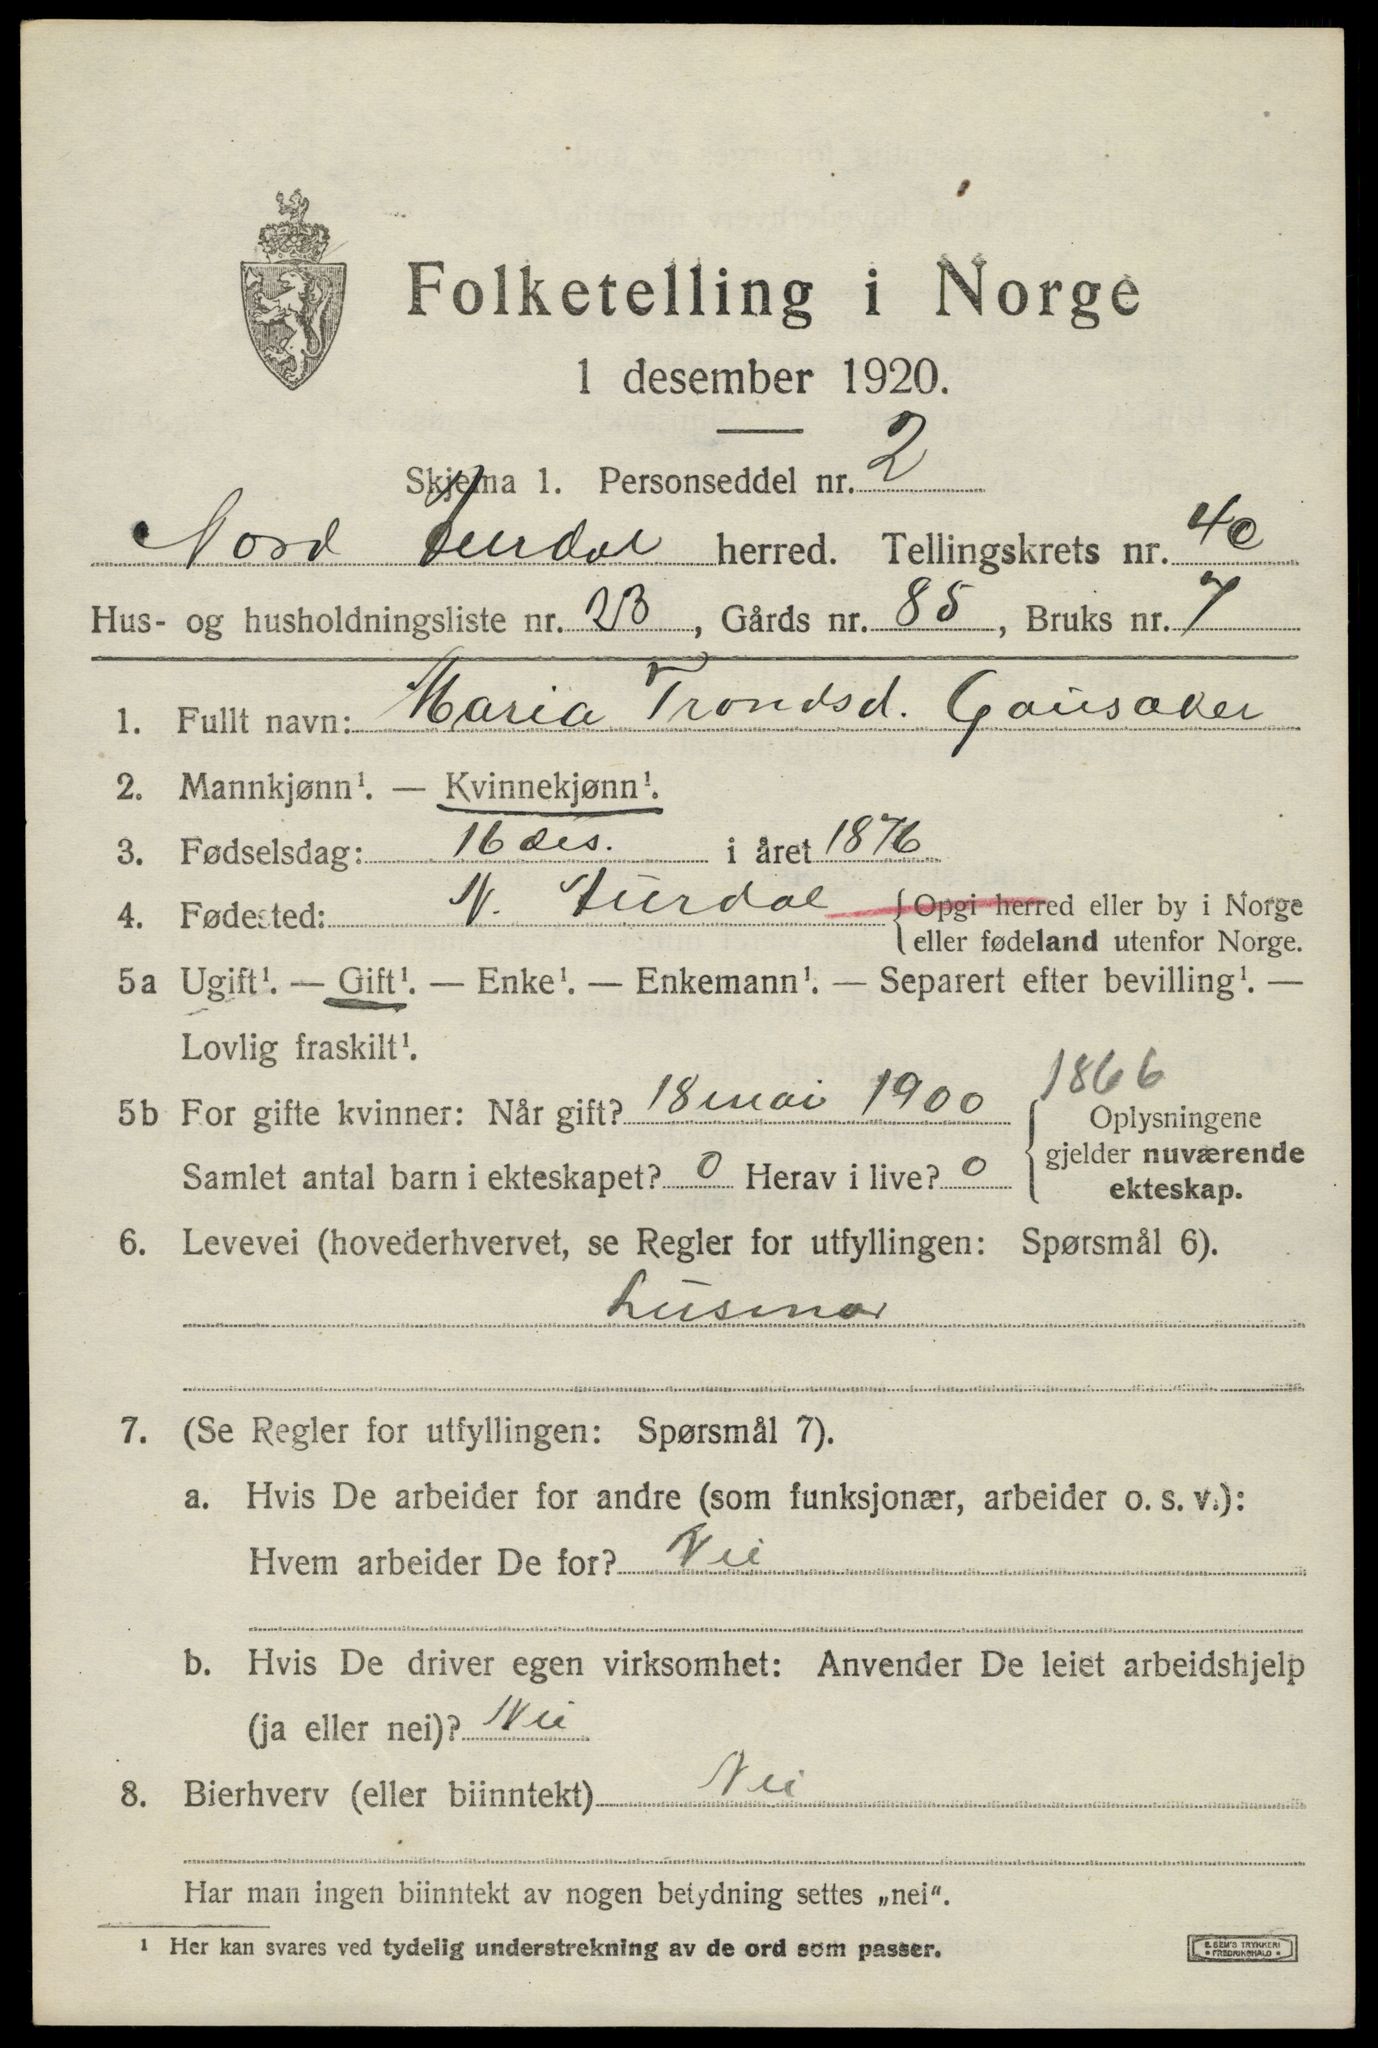 Folketelling i Norge
1 desember 1920.
Skjema 1. Personseddel nr. 2
Nord Aurdal herred. Tellingskrets nr. 4c
Hus- og husholdningsliste nr. 23, Gårds nr. 85, Bruks nr. 7
1. Fullt navn: Maria Trondsd. Gausaker
2. Mannkjønn¹. — Kvinnekjønn¹.
3. Fødselsdag: 16 des. i året 1876
4. Fødested: N. Aurdal { Opgi herred eller by i Norge
eller fødeland utenfor Norge.
5a Ugift¹. — Gift¹. — Enke¹. — Enkemann¹. — Separert efter bevilling¹. —
Lovlig fraskilt¹.
1866
5b For gifte kvinner: Når gift? 18 mai 1900 { Oplysningene
gjelder nuværende
Samlet antal barn i ekteskapet? 0 Herav i live? 0
ekteskap.
6. Levevei (hovederhvervet, se Regler for utfyllingen: Spørsmål 6).
Husmor
7. (Se Regler for utfyllingen: Spørsmål 7).
a. Hvis De arbeider for andre (som funksjonær, arbeider o. s. v.):
Hvem arbeider De for? Nei
b. Hvis De driver egen virksomhet: Anvender De leiet arbeidshjelp
(ja eller nei)? Nei
8. Bierhverv (eller biinntekt) Nei
Har man ingen biinntekt av nogen betydning settes „nei“.
¹ Her kan svares ved tydelig understrekning av de ord som passer.
E. SEM'S TRYKKERI
• FREDRIKSHALD •